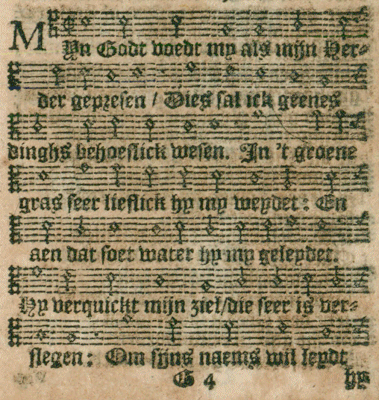 MYn Godt voedt my als mijn Her-
der gepresen / Dies sal ick geenes
dinghs behoeflick wesen. In 't groene
gras seer lieflick hy my weydet: En
aen dat soet water hy my geleydet.
Hy verquickt mijn ziel/die seer is ver-
slegen: Om sijns naems wil leydt
G 4 hy